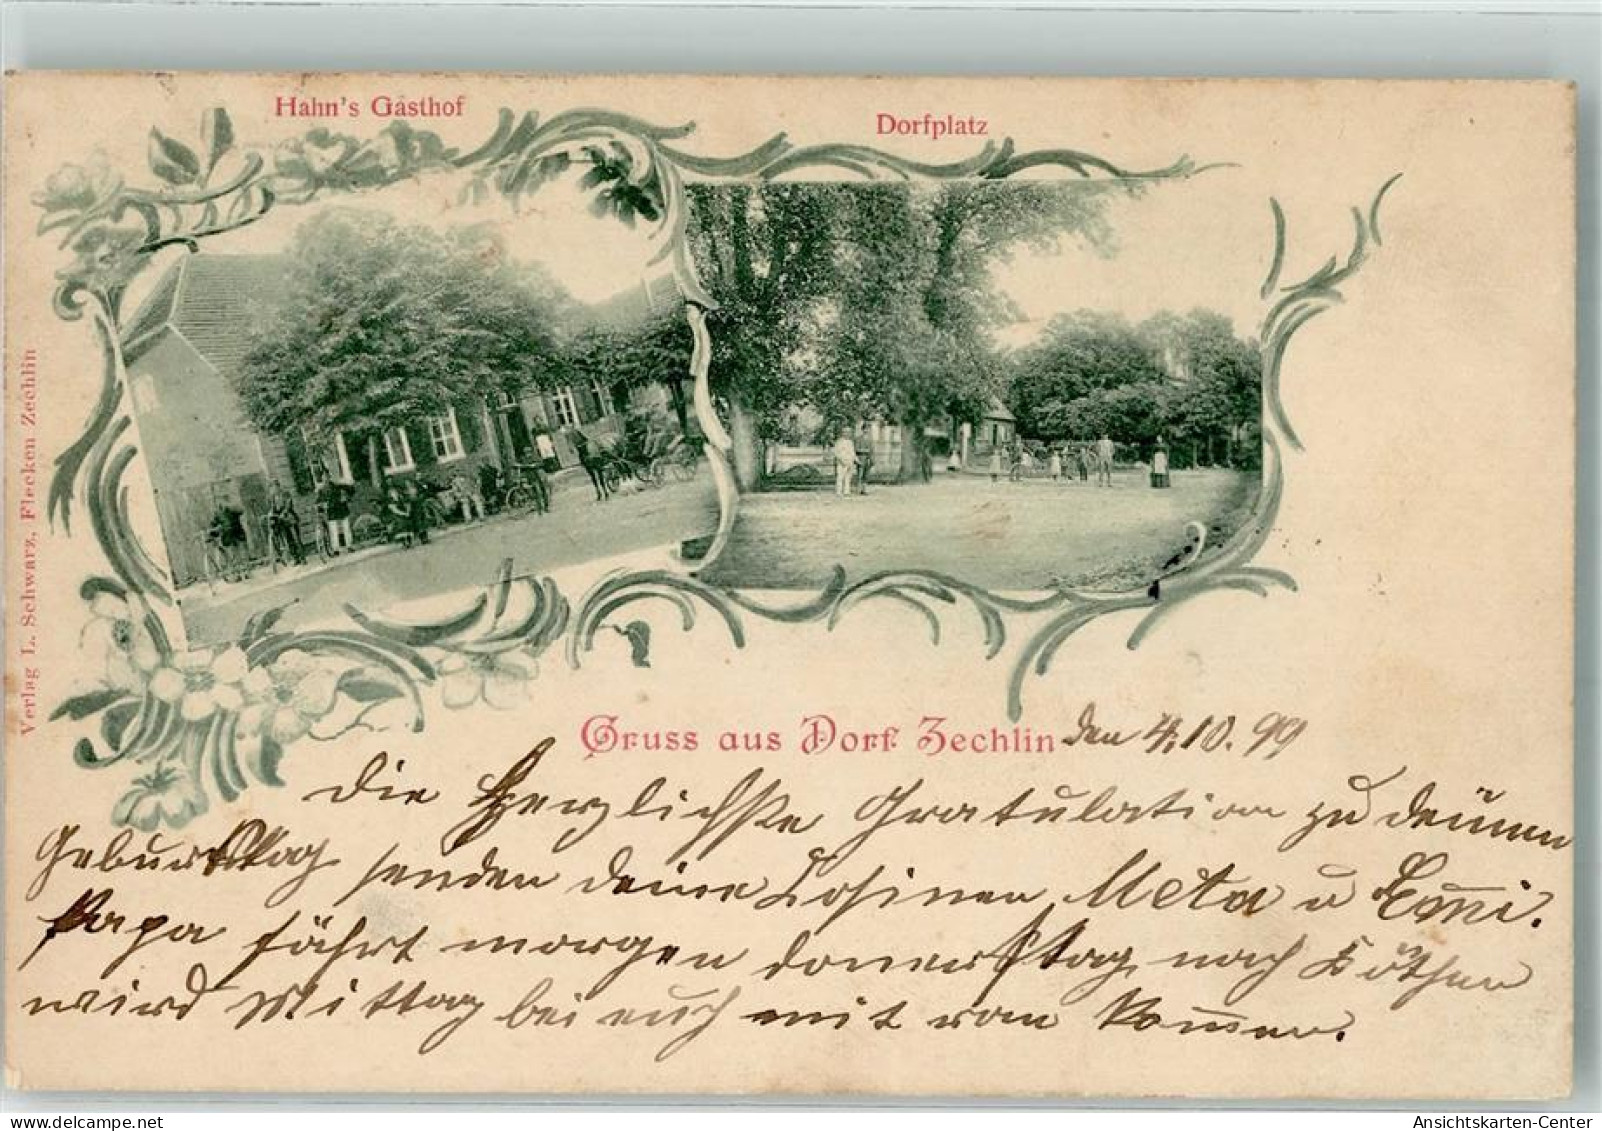 Hahn's Gasthof
Dorfplatz
Verlag L. Schwarz, Flecken Zechlin
Gruss aus Dorf Zechlin
den 4.10.99
Die Herzlichste Gratulation zu deinen
Geburtstag senden deine Cosinen Meta u Emi.
Papa fährt morgen donnerstag nach Köthen
wird Mittag bei euch mit ran kommen.
delcampe.net
Ansichtskarten-Center